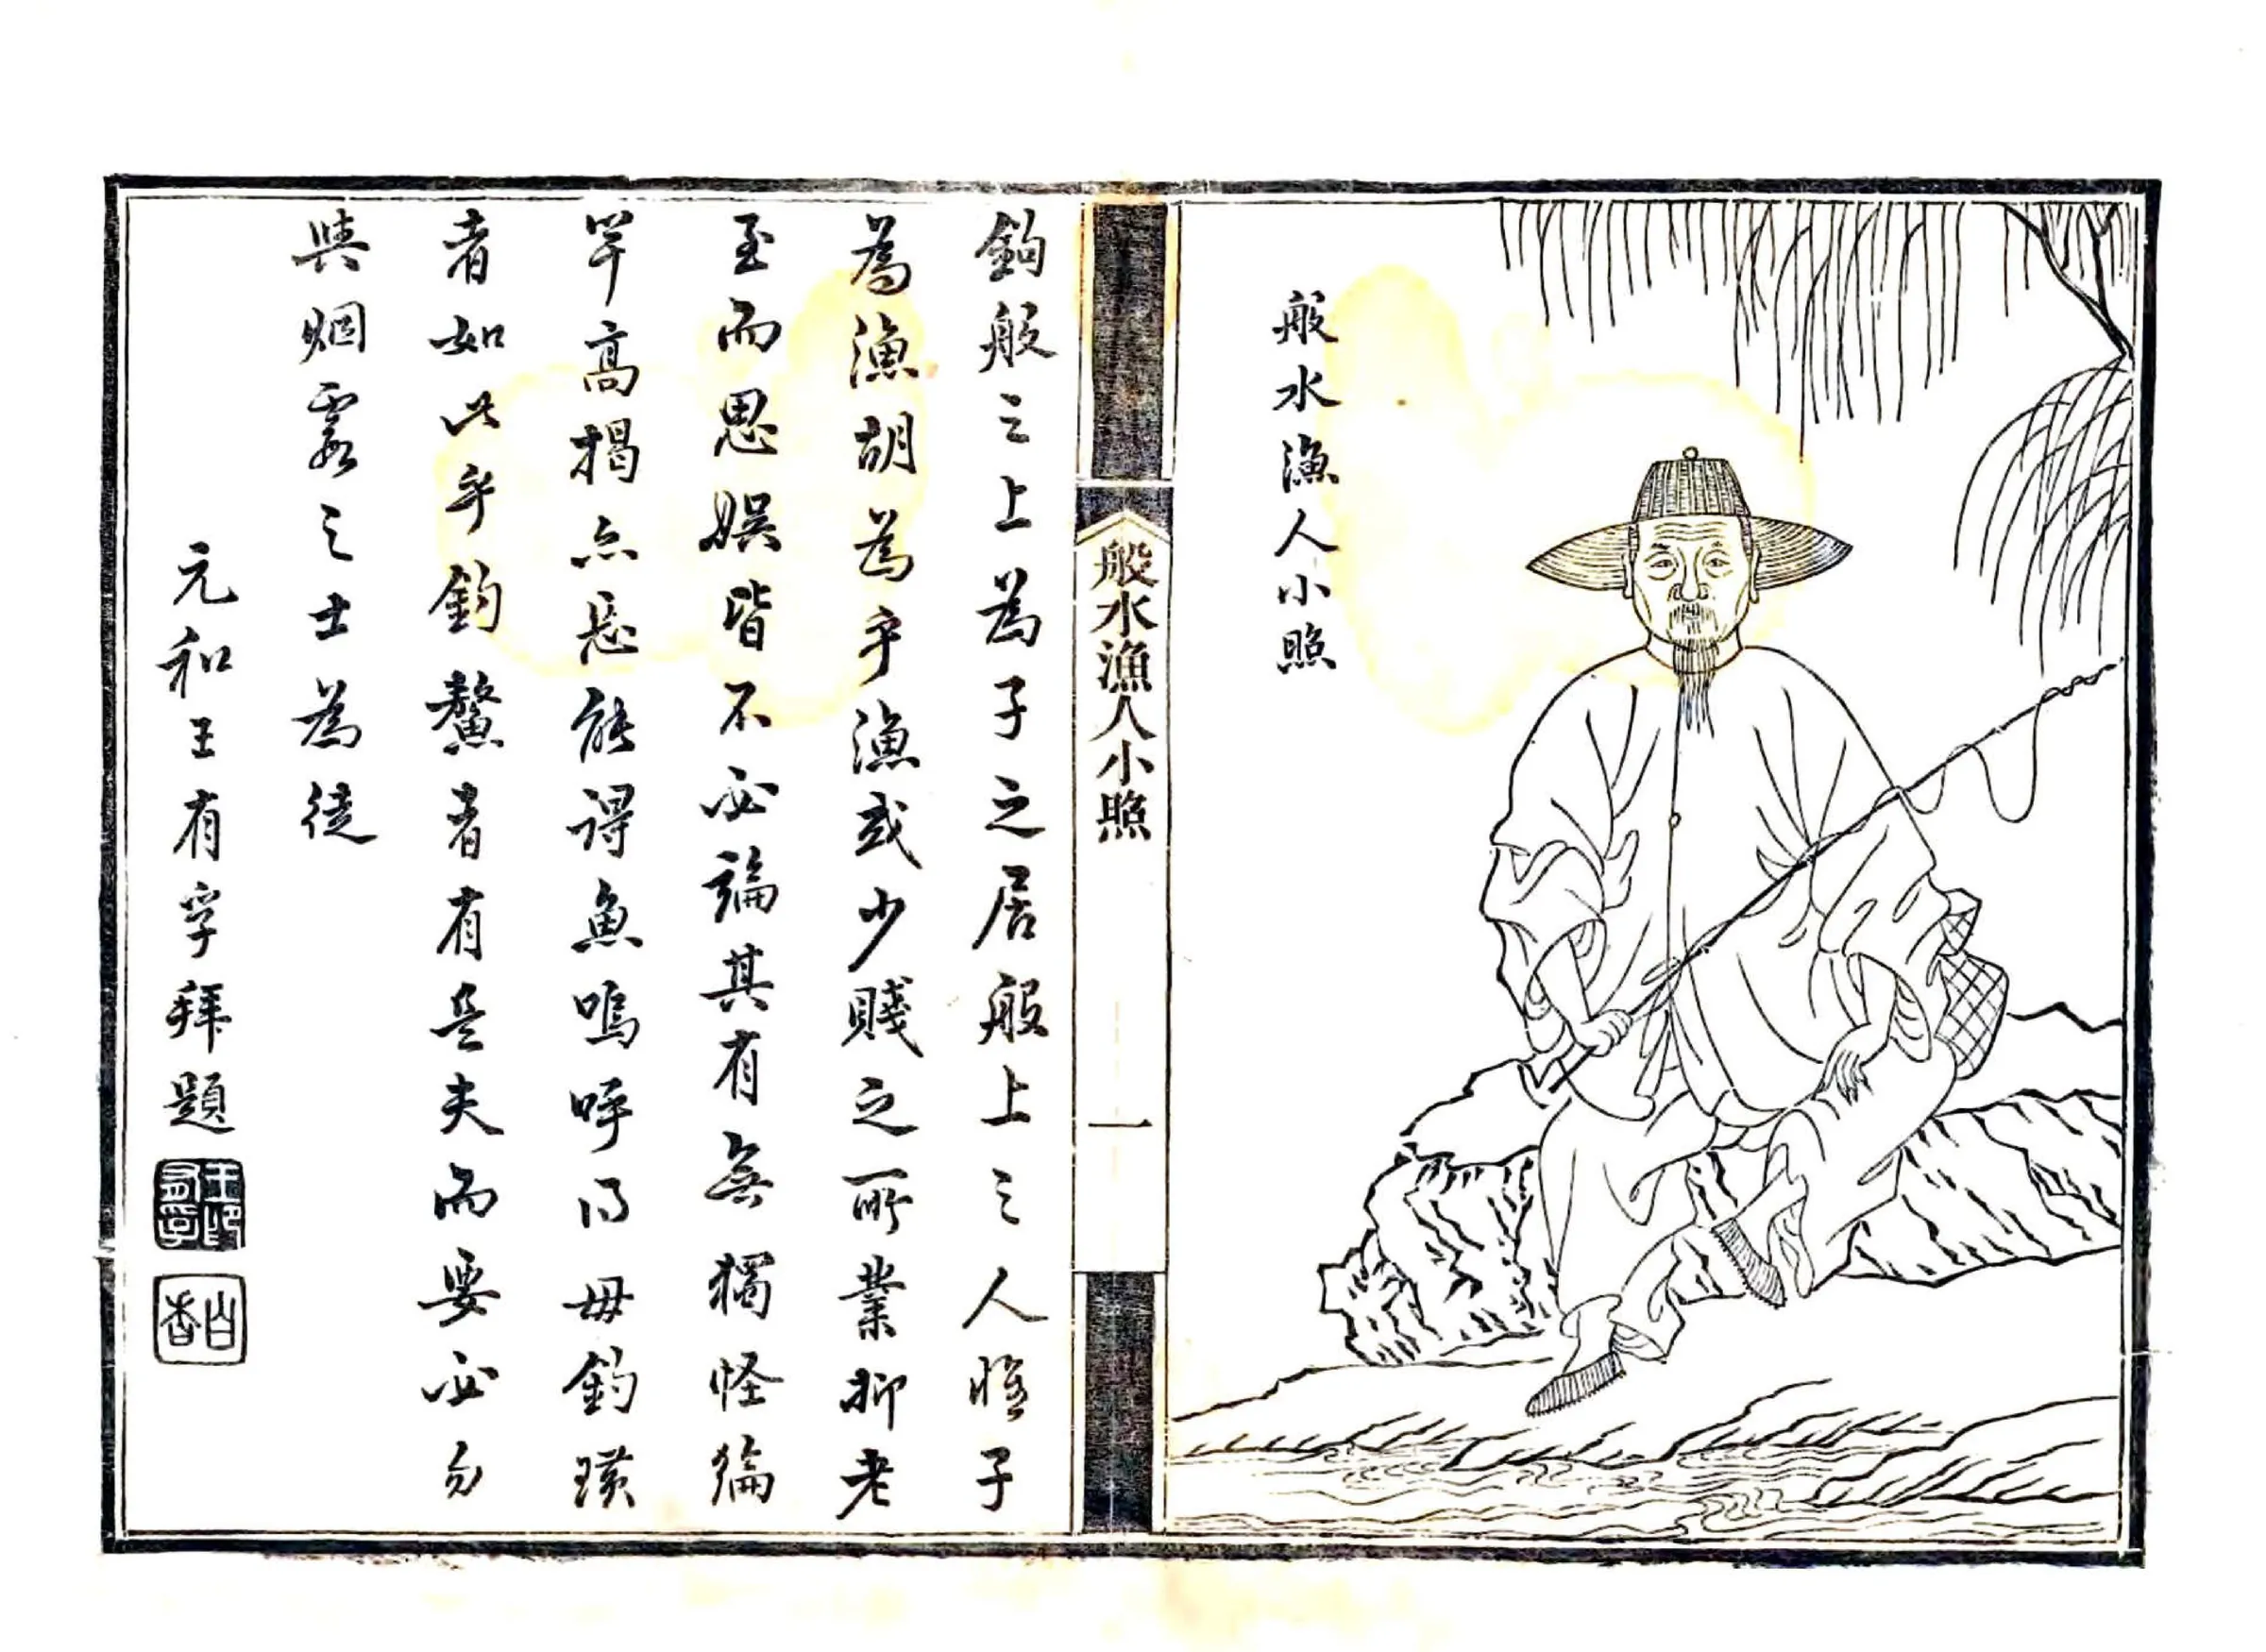 般水漁人小照
般水漁人小照
一
鉤般之上為子之居般上之人子
為漁胡為乎漁或少賤之所業抑老
至而思娛皆不必論其有無獨怪綸
竿高揭亦惡能得魚嗚呼得毋釣璜
者如此乎釣鰲者有是夫而要必
與烟霞之士為徒
元和王有孚拜題
王印有孚